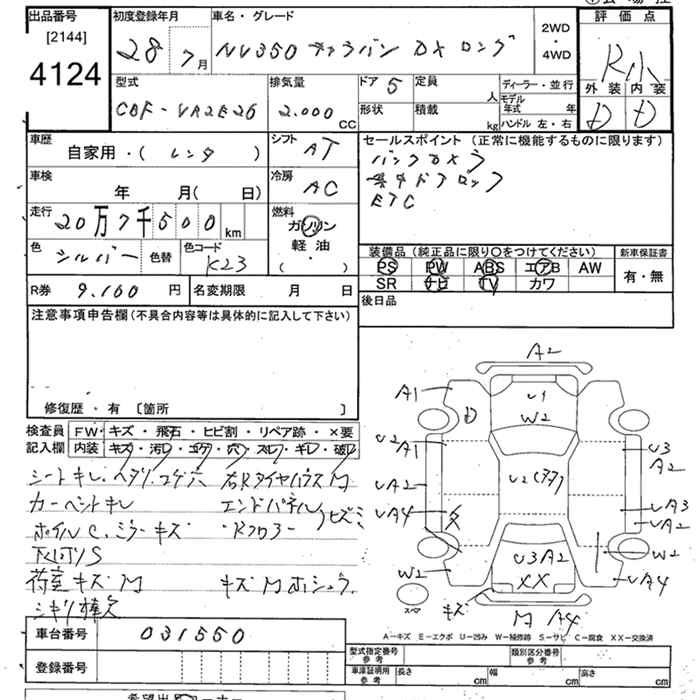 出品番号
[2144]
4124
初度登録年月
28年 7月
車名・グレード
NV350 キャラバン DX ロング
2WD
・
4WD
評価点
R小
外装 内装
D D
型式
CBF-VR2E26
排気量
2.000
CC
ドア 5
定員
人
形状
積載
kg
ディーラー・並行
モデル
年式 年
ハンドル 左・右
車歴
自家用・( レンタ )
シフト
AT
車検
年 月( 日)
冷房
AC
走行
20万7千500
km
燃料
ガソリン
軽油
( ・ )
色
シルバー
色替
色コード
K23
R券
9.160 円
名変期限 月 日
セールスポイント (正常に機能するものに限ります)
バックカメラ
集中ドアロック
ETC
装備品 (純正品に限り〇をつけてください)
PS PW ABS エアB AW
SR ナビ TV カワ
新車保証書
有・無
後日品
注意事項申告欄(不具合内容等は具体的に記入して下さい)
修復歴・有 〔箇所 〕
検査員
記入欄
FW・キズ・飛石・ヒビ割・リペア跡・×要
内装・キズ・汚レ・コゲ・穴・スレ・キレ・破レ
シートキレ・ヘタリ・コゲ穴 右Rタイヤハウス M
カーペットキレ エンドパネル
ホイルC.ミラーキズ ・Rフロアー ヒズミ
下回りS
荷室キズM キズMホシュウ
シキリ棒欠
A2
A1
U1
W2
D
U2
A1
U2(アタ)
U3
A2
UA2
UA4
UA3
UA2
U3A2
XX
W2
W2
UA4
スペア
キズ
M A4
A－キズ E－エクボ U－凹み W－補修跡 S－サビ C－腐食 XX－交換済
車台番号
031550
登録番号
型式指定番号
参考
類別区分番号
参考
車庫証明用
参考
長さ cm
幅 cm
高さ cm